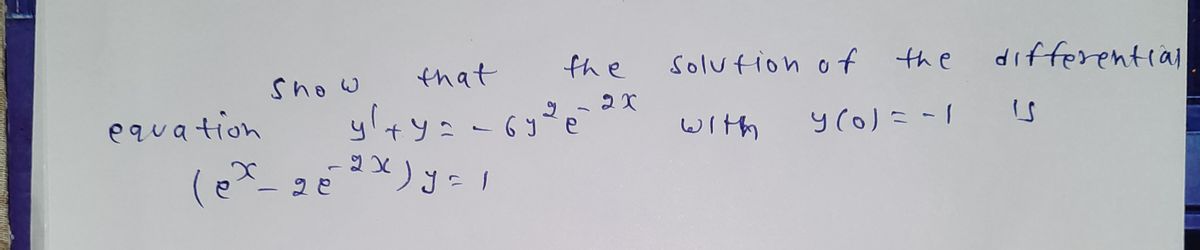 show that the solution of the differential
equation y' + y = - 6y²e^-2x with y(0) = -1 is
(e^x - 2e^-2x) y = 1